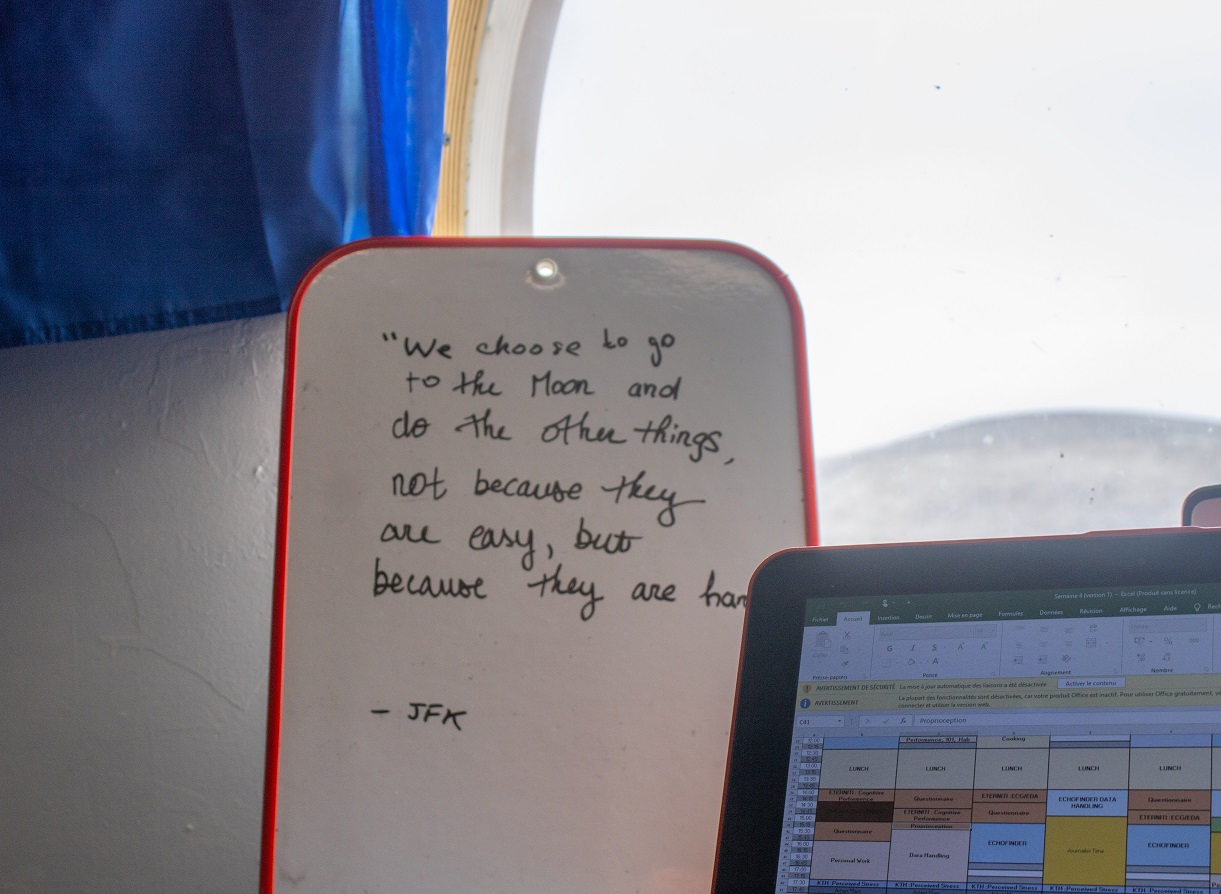 "We choose to go
to the Moon and
do the other things,
not because they
are easy, but
because they are har
- JFK
Semaine 4 (version 1) - Excel (Produit sans licence)
Fichier Accueil Insertion Dessin Mise en page Formules Données Révision Affichage Aide
Presse-papiers Police Alignement Nombre
AVERTISSEMENT DE SÉCURITÉ La mise à jour automatique des liaisons a été désactivée Activer le contenu
AVERTISSEMENT La plupart des fonctionnalités sont désactivées, car votre produit Office est inactif. Pour utiliser Office gratuitement,
connecter et utiliser la version web.
C41 fx Proprioception
Cooking
LUNCH LUNCH LUNCH LUNCH LUNCH
ETERNITI - Cognitive Performance Questionnaire ETERNITI -ECG/EDA ECHOFINDER DATA HANDLING Questionnaire
ETERNITI - Cognitive Performance Questionnaire ETERNITI -ECG/EDA
Proprioception
Questionnaire ECHOFINDER Journalist Time ECHOFINDER
Personal Work Data Handling
KTH :Perceived Stress KTH :Perceived Stress KTH :Perceived Stress KTH :Perceived Stress KTH :Perceived Stress